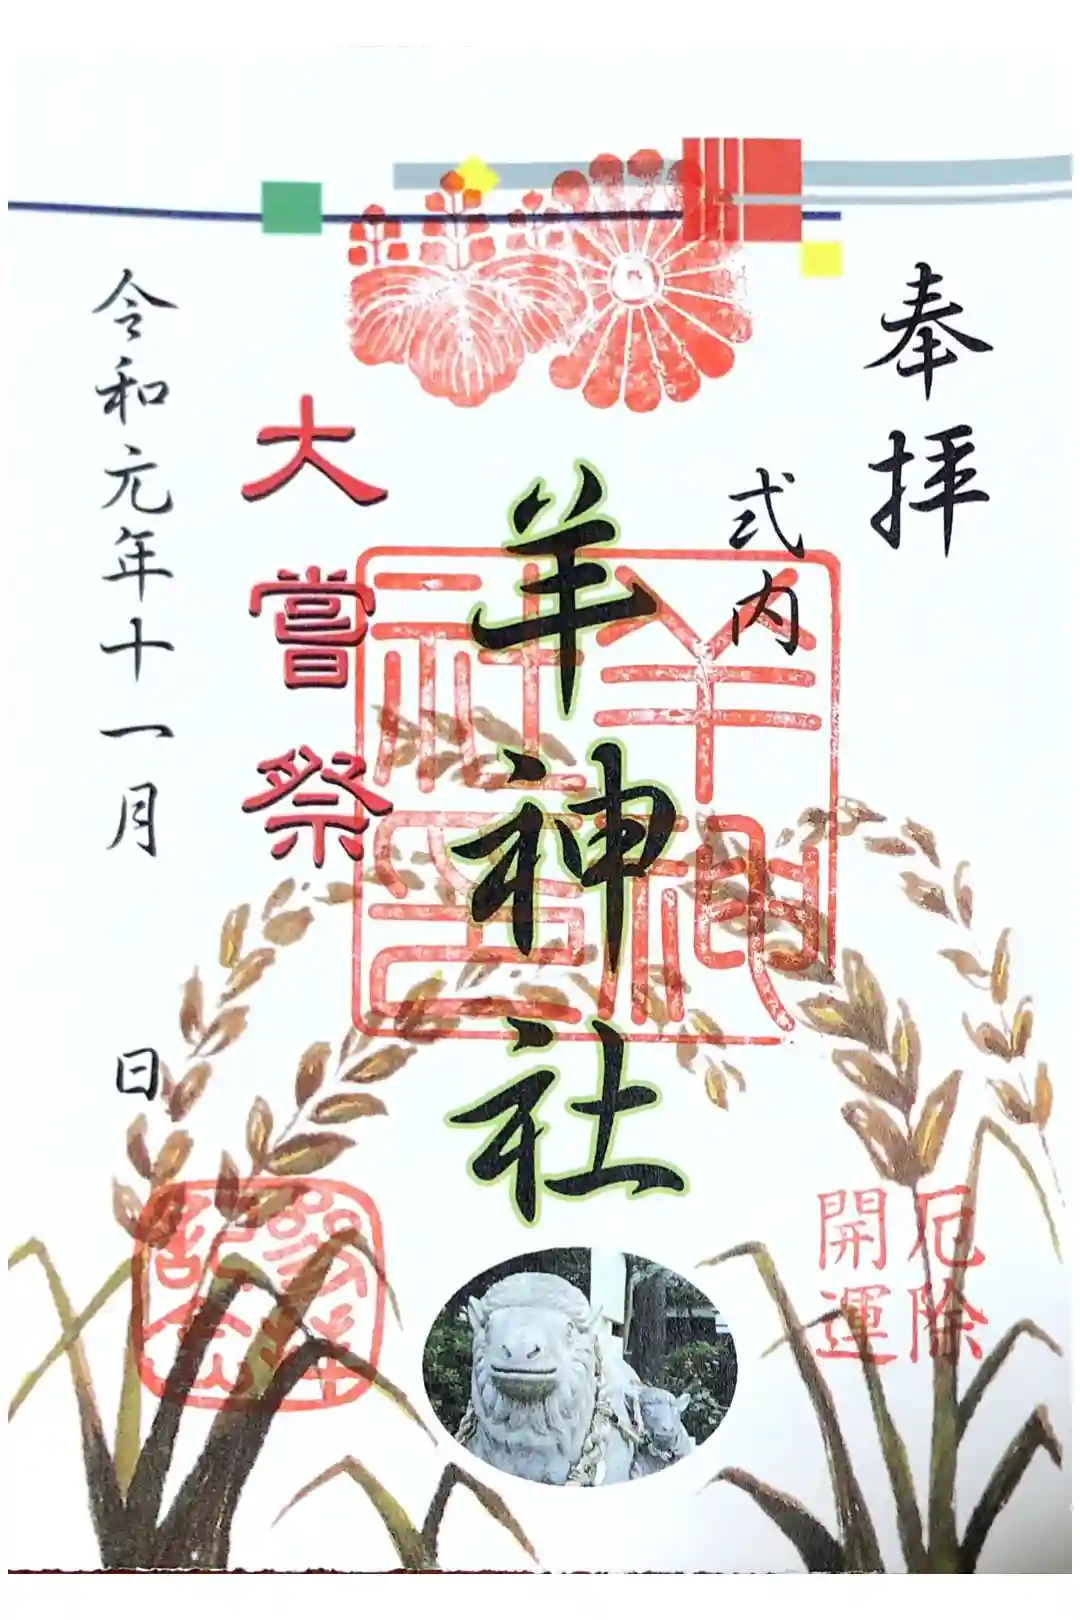 奉拝
式内
羊神社
大嘗祭
令和元年十一月　日
羊神社
厄除
開運